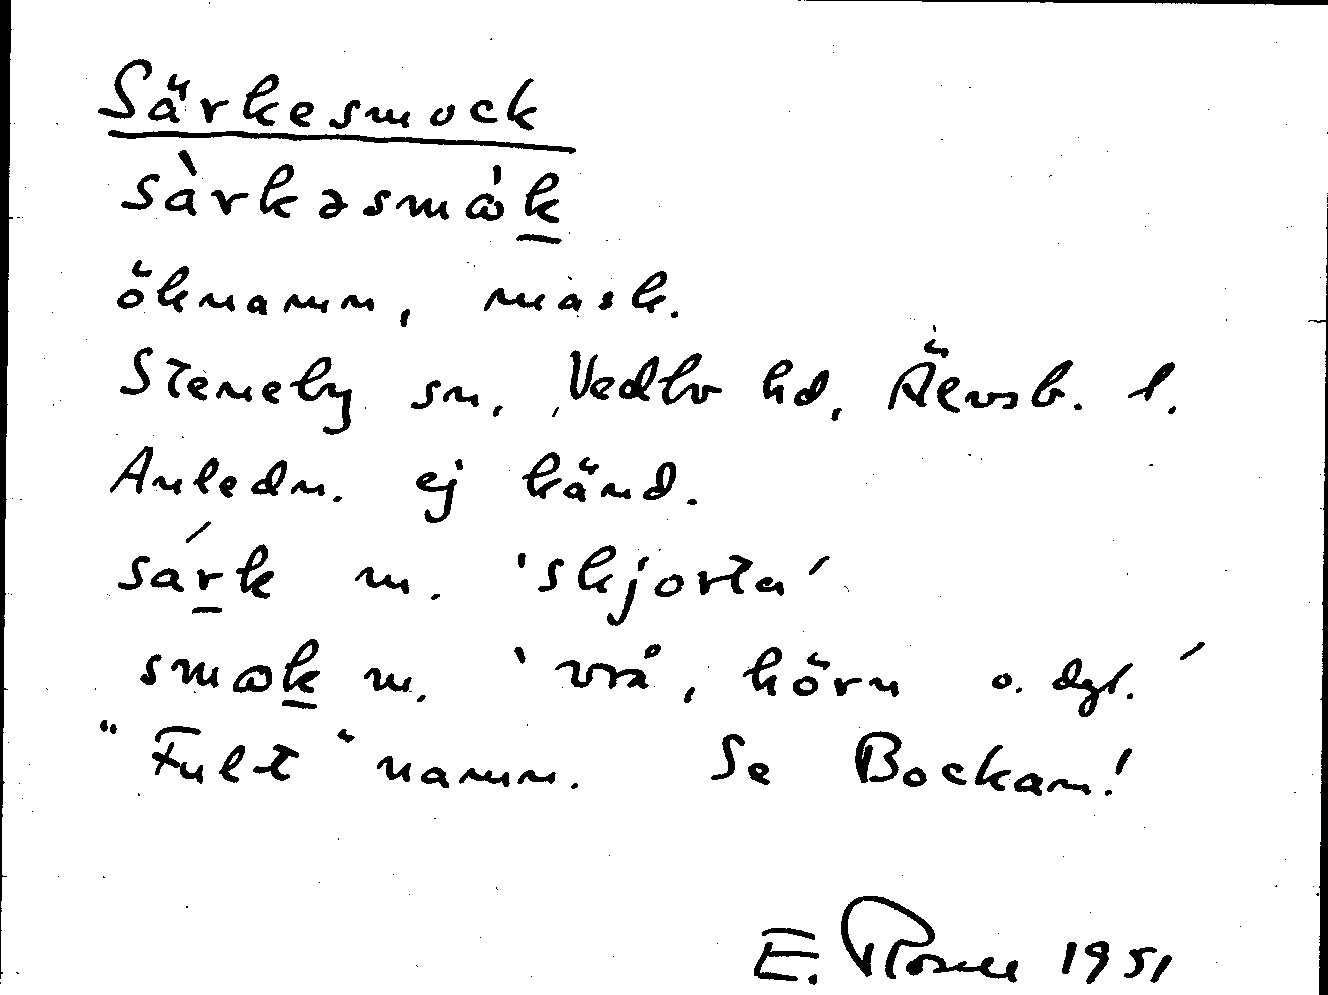 Särkesmock
sàrkəsmω̇k
öknamn, mask.
Steneby sn, Vedbo hd, Älvsb. l.
Anledn. ej känd.
sárk m. 'skjorta'
smωk m. 'vrå, hörn o. dyl.'
"Fult" namn. Se Bockan!
E. 1951